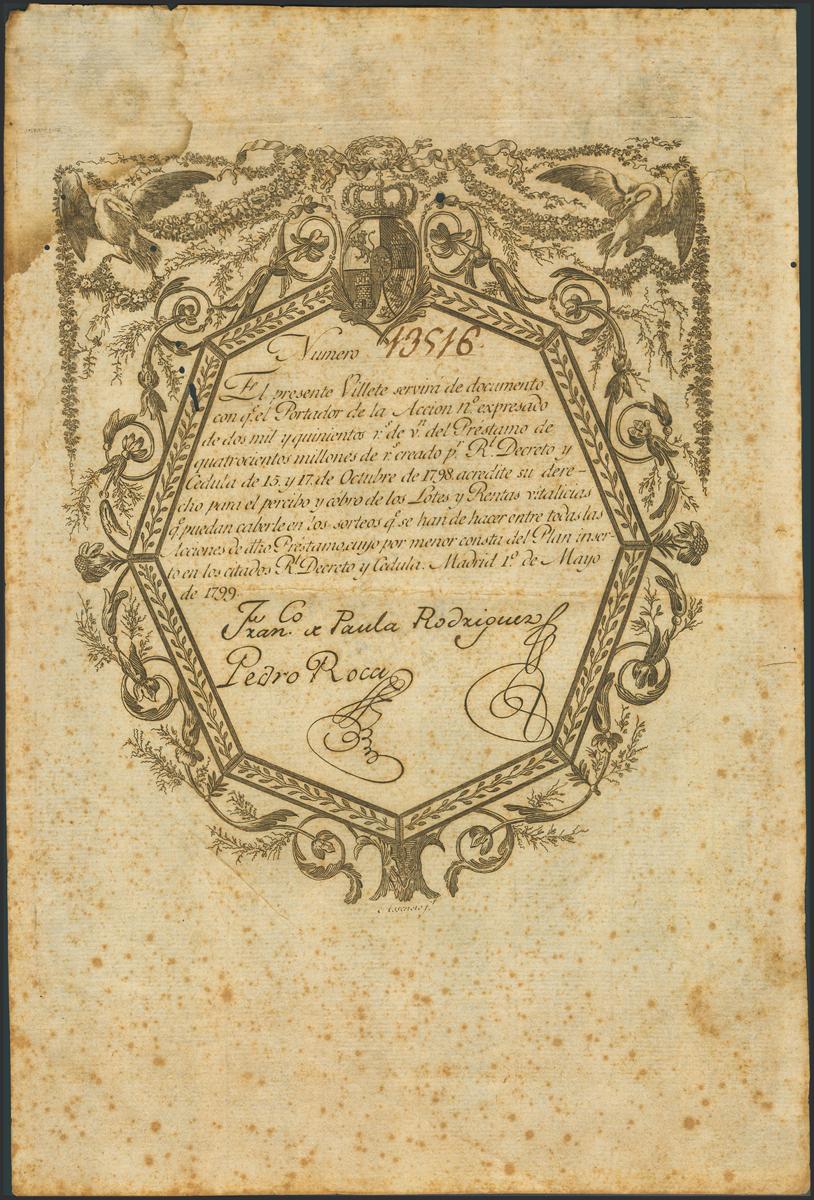 Numero 13516
El presente Villete servirá de documento
con q.e el Portador de la Accion n.o expresado
de dos mil y quinientos r.s de v.n del Préstamo de
quatrocientos millones de r.s creado p.r R.l Decreto y
Cedula de 15 y 17 de Octubre de 1798 acredite su dere-
cho para el percibo y cobro de los Lotes y Rentas vitalicias
q.e puedan caberle en los sorteos q.e se han de hacer entre todas las
Acciones de dho Préstamo, cuyo por menor consta del Plan inser-
to en los citados R.l Decreto y Cedula. Madrid 1.o de Mayo
de 1799.
Fran.co de Paula Rodriguez
Pedro Roca
Assensio f.t